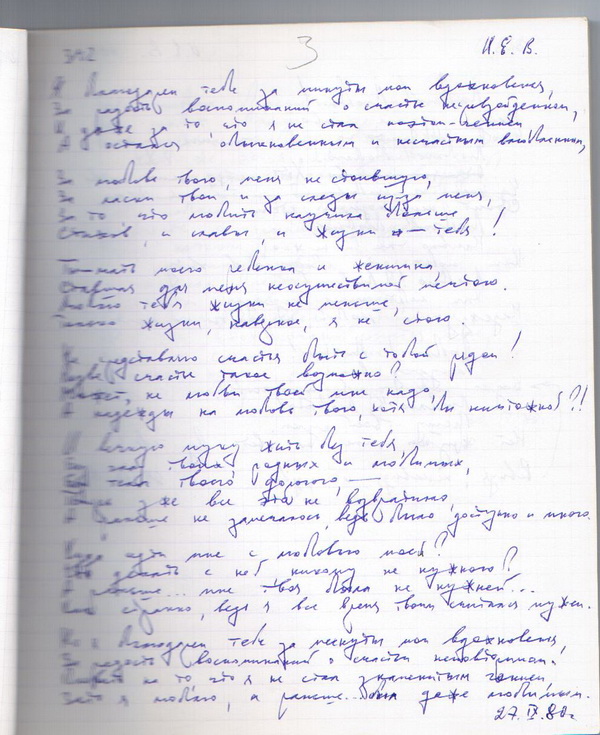 3
И. Е. В.
Я благодарен тебе за минуты мои вдохновенья,
За радость воспоминаний о счастье непревзойденном,
И даже за то что я не стал поэтом-гением
А остался обыкновенным и несчастным влюбленным,
За любовь твою, меня не стоившую,
За ласки твои и за слезы из-за меня,
За то что любить научила больше
Стихов, и славы, и жизни — тебя!
Ты мать моего ребенка и женщина,
Ставшая для меня неосуществимой мечтою.
Люблю тебя жизни не меньше,
Только жизни, наверное, я не стою.
Не представляю счастья быть с тобой рядом!
Разве счастье такое возможно?
Может, не любви твоей мне надо,
А надежды на любовь твою, хотя бы ничтожной?!
В вечную муку жить без тебя,
глаз твоих родных и любимых,
тела твоего дорогого, —
уже все это не возвратимо,
А раньше не замечалось, ведь было доступно и много.
Куда идти мне с любовью моей?
Что делать с ней никому не нужною?
А раньше... мне твоя была не нужней...
Как странно, ведь я все время твоим считался мужем.
Но я благодарен тебе за минуты мои вдохновенья,
За радость воспоминаний о счастье неповторимом.
на то что я не стал знаменитым гением
Зато я люблю, а раньше... был даже любимым.
27.IX.80г.